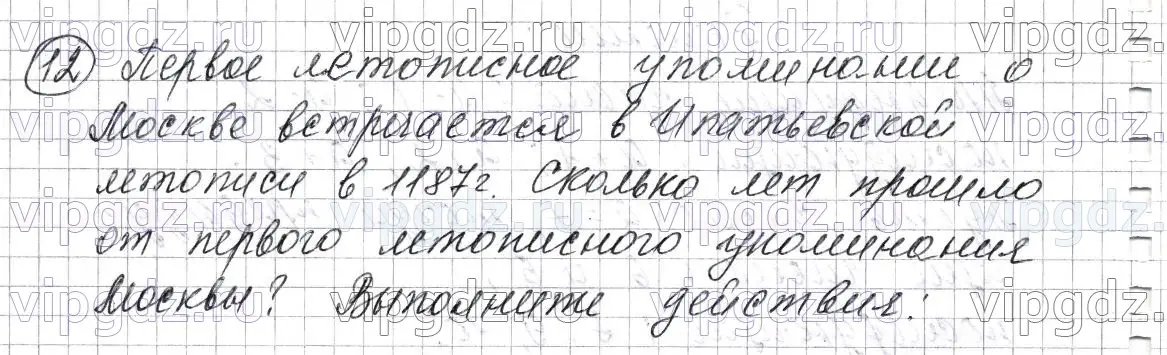 12 Первое летописное упоминании о
Москве встречается в Ипатьевской
летописи в 1187г. Сколько лет прошло
от первого летописного упоминания
Москвы? Выполните действия:
vipgdz.ru vipgdz.ru vipgdz.ru vipgdz.
vipgdz.ru vipgdz.ru vipgdz.ru vipgdz.
vipgdz.ru vipgdz.ru vipgdz.ru vipgdz.
vipgdz.ru vipgdz.ru vipgdz.ru vipgdz.